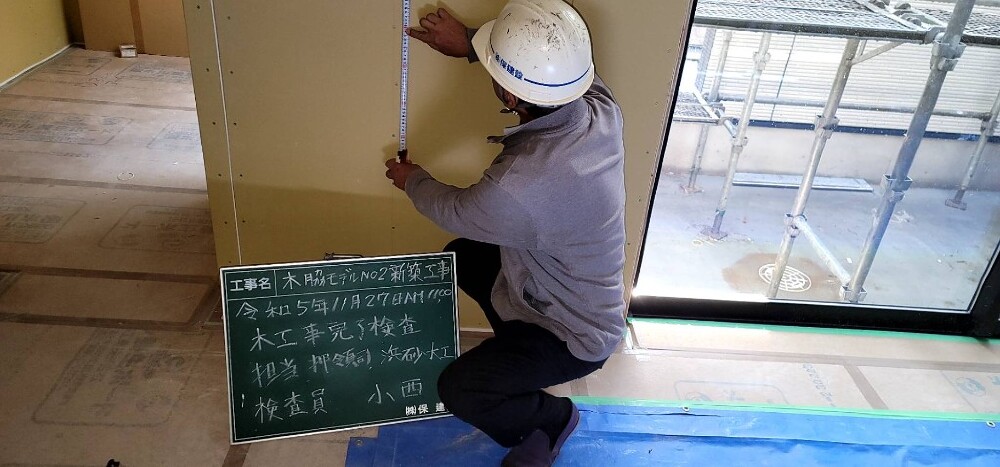 保建設
工事名 木脇モデルNO2新築工事
令和5年11月27日AM1100
木工事完了検査
担当 押領司 浜砂大工
検査員 小西
㈱保建